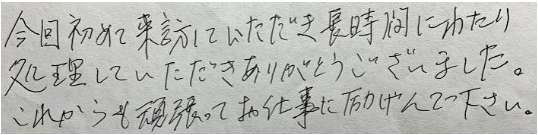 今回初めて来訪していただき長時間にわたり
処理していただきありがとうございました。
これからも頑張ってお仕事に励げんで下さい。